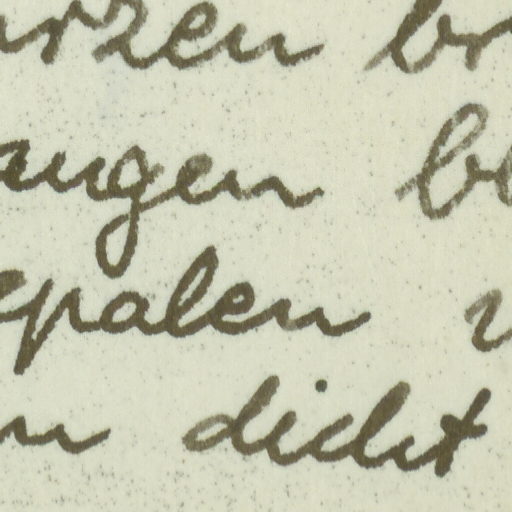 rzen br
augen bl
epalen
n dicht